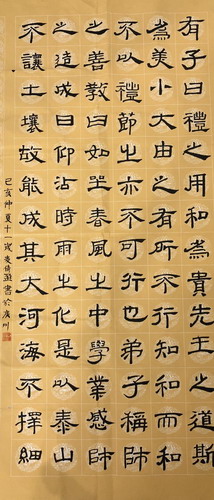 有子曰禮之用和為貴先王之道斯
為美小大由之有所不行知和而和
不以禮節之亦不可行也弟子稱師
之善教曰如坐春風之中學業感師
之造成曰仰沾時雨之化是以泰山
不讓土壤故能成其大河海不擇細
己亥仲夏十一歲書於廣州